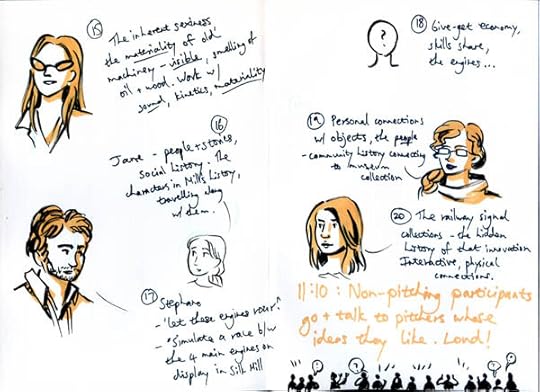 15
The inherent sexiness
the materiality of old
machinery - visible, smelling of
oil + wood. Work w/
sound, kinetics, materiality
16
Jane - people + stories,
social history. The
characters in Mill's history,
travelling along
w/ them.
17
Stephano
- "let these engines roar"
- "Simulate a race b/w
the 4 main engines on
display in Silk Mill
18
Give-get economy,
skills share,
the engines...
?
19
Personal connections
w/ objects, the people
- community history connecting
to museum
collection
20
The railway signal
collections - the hidden
history of that innovation
Interactive, physical
connections.
11:10 : Non-pitching participants
go + talk to pitchers whose
ideas they like. Loud!
? ! ? !